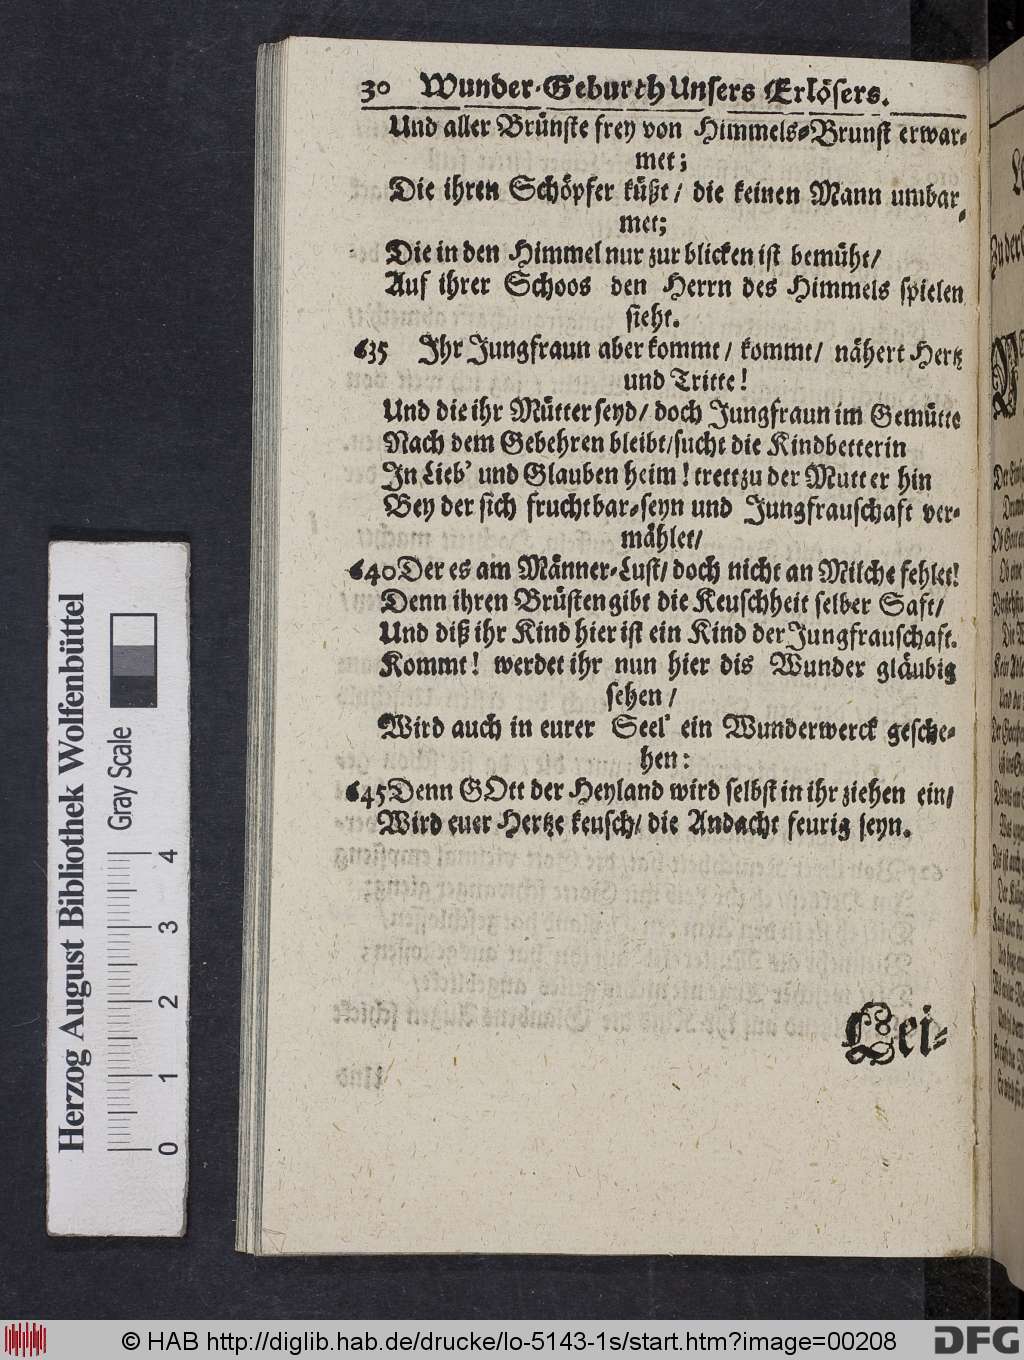 30 Wunder-Geburth Unsers Erlösers.
Und aller Brünste frey von Himmels-Brunst erwar-
met;
Die ihren Schöpfer küßt/ die keinen Mann umbar-
met;
Die in den Himmel nur zur blicken ist bemüht/
Auf ihrer Schoos den Herrn des Himmels spielen
sieht.
635 Ihr Jungfraun aber kommt/ kommt/ nähert Hertz
und Tritte!
Und die ihr Mütter seyd/ doch Jungfraun im Gemütte
Nach dem Gebehren bleibt/ sucht die Kindbetterin
In Lieb' und Glauben heim! trett zu der Mutter hin
Bey der sich fruchtbar-seyn und Jungfrauschaft ver-
mählet/
640 Der es am Männer-Lust/ doch nicht an Milche fehlet!
Denn ihren Brüsten gibt die Keuschheit selber Saft/
Und diß ihr Kind hier ist ein Kind der Jungfrauschaft.
Kommt! werdet ihr nun hier dis Wunder gläubig
sehen/
Wird auch in eurer Seel' ein Wunderwerck gesche-
hen:
645 Denn GOtt der Heyland wird selbst in ihr ziehen ein/
Wird euer Hertze keusch/ die Andacht feurig seyn.
Lei-
Herzog August Bibliothek Wolfenbüttel
Gray Scale
0 1 2 3 4
© HAB http://diglib.hab.de/drucke/lo-5143-1s/start.htm?image=00208
DFG